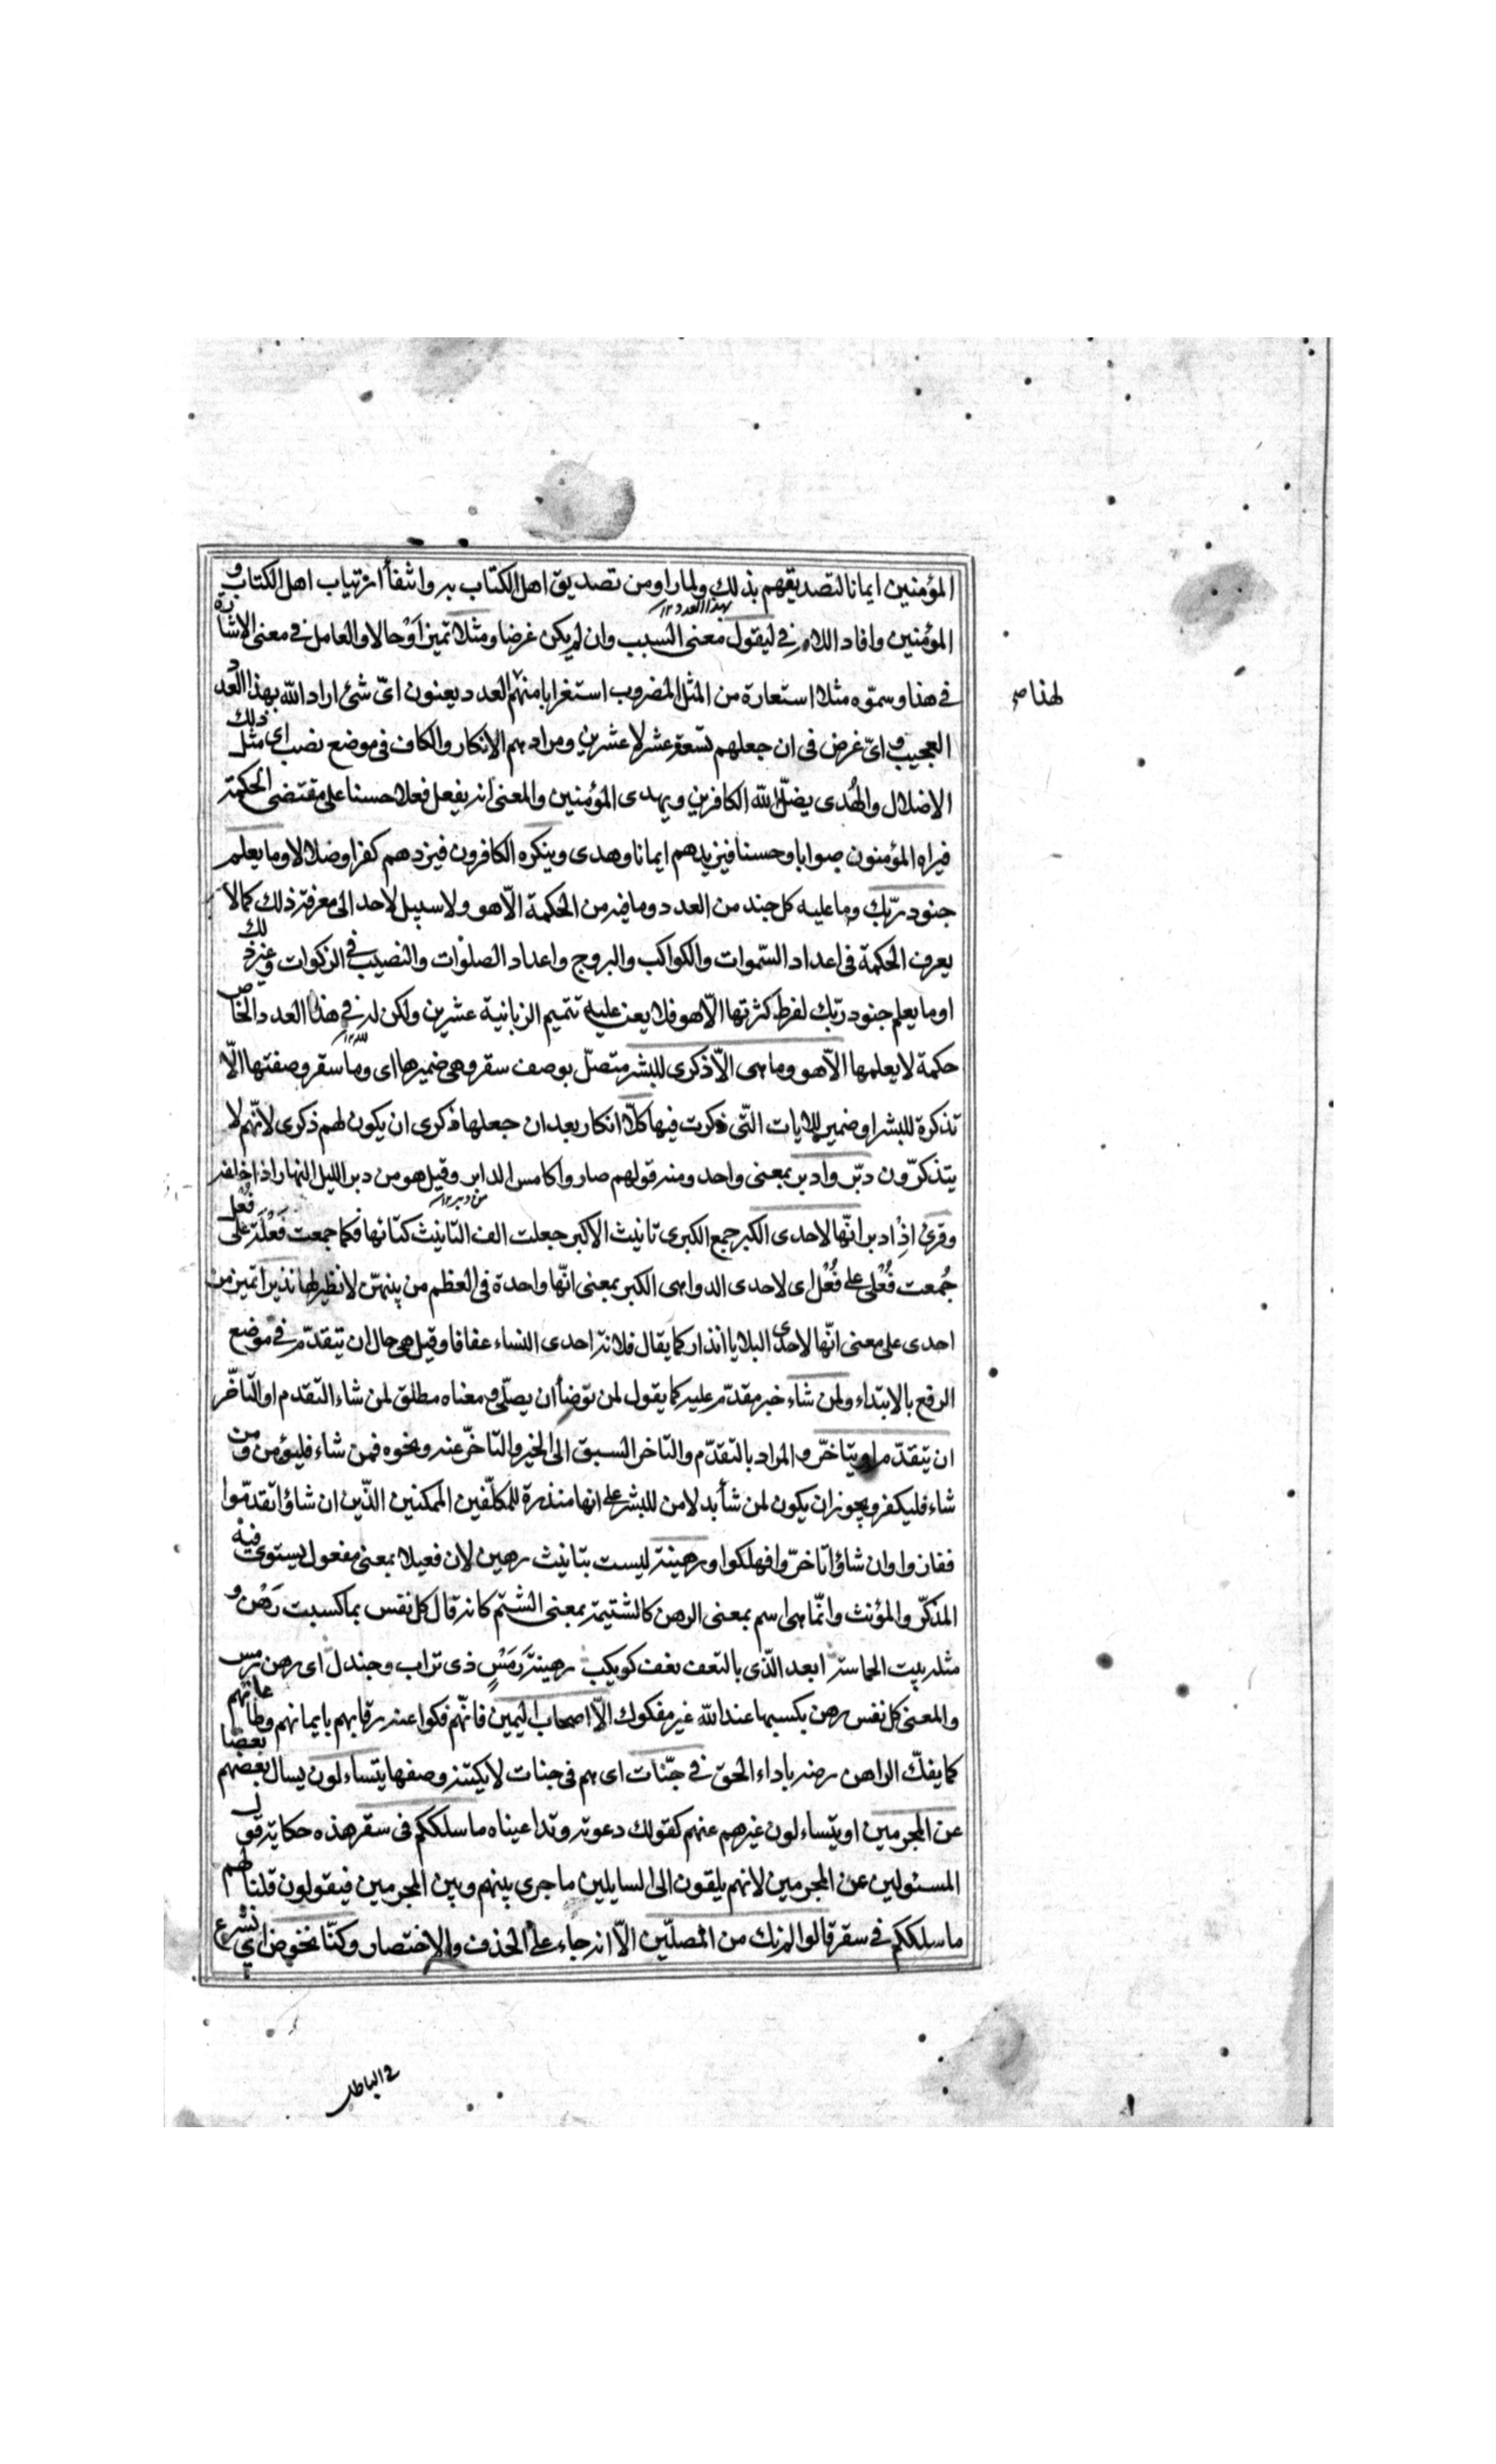 المؤمنين ايمانا لتصديقهم بذلك ولما راو من تصديق اهل الكتاب به وانتفأ ارتياب اهل الكتاب و
المؤمنين وافاد اللام في ليقول معنى السبب وان لم يكن غرضا ومثلا تميز اوحالا والعامل في معنى الاشارة
بهذا العدد ١٢
في هذا وسمّوه مثلا استعارة من المثل المضروب استغرابا منهم العدد يعنون اىّ شئ اراد الله بهذا العدد
لهذا صح
العجيب واىّ غرض فى ان جعلهم تسعة عشر لا عشرين ومرادهم الانكار والكاف فى موضع نصب اى مثل ذلك
الاضلال والهُدى يضلّ الله الكافرين ويهدى المؤمنين والمعنى انه يفعل فعلا حسنا على مقتضى الحكمة
فيراه المؤمنون صوابا وحسنا فيزيدهم ايمانا وهدى وينكره الكافرون فيزدهم كفرا وضلالا وما يعلم
جنود ربّك وما عليه كل جند من العدد وما فيه من الحكمة الّا هو ولا سبيل لاحد الى معرفة ذلك كما لا
يعرف الحكمة فى اعداد السّموات والكواكب والبروج واعداد الصلوات والنصيب في الزكوات وغير ذلك
او ما يعلم جنود ربّك لفرط كثرتها الّا هو فلا يعن عليه تتميم الزبانية عشرين ولكن له في هذا العدد الخاص
حكمة لا يعلمها الّا هو وما هى الّا ذكرى للبشر متصّل بوصف سقر وهى ضميرها اى وما سقر وصفتها الّا
تذكرة للبشر او ضمير للايات التّى ذكرت فيها كلّا انكار بعد ان جعلها ذكرى ان يكون لهم ذكرى لانّهم لا
يتذكرّون دبّر وادبر بمعنى واحد ومنه قولهم صاروا كامس الدابر وقيل هو من دبر الليل النهار اذا خلفه
من دبر ١٢
وقرئ اذ ادبر انّها لاحدى الكبر جمع الكبرى تانيث الاكبر جعلت الف التانيث كتائها فكما جمعت فَعْلَة على فُعَل
جُمعت فُعْلى على فُعَل اى لاحدى الدواهى الكبر بمعنى انّها واحدة فى العظم من بينهنّ لا نظير لها نذيرا تميز من
احدى على معنى انّها لاحدى البلايا انذار كما يقال فلانة احدى النساء عفافا وقيل هى حال ان يتقدّم في موضع
الرفع بالابتداء ولمن شاء خبر مقدّم عليه كما يقول لمن توضأ ان يصلّى ومعناه مطلق لمن شاء التقدم او التأخّر
ان يتقدّم او يتاخّر والمراد بالتقدّم والتاخر السبق الى الخير والتاخرّ عنه ونحوه فمن شاء فليؤمن ومن
شاء فليكفر ويجوز ان يكون لمن شأ بدلا من للبشر على انها منذرة للمكلّفين الممكنين الذّين ان شاؤا تقدمّوا
ففازوا وان شاؤا تاخرّوا فهلكوا ورهينة ليست بتانيث رهين لان فعيلا بمعنى مفعول يستوى فيه
المذكرّ والمؤنث وانّما هى اسم بمعنى الرهن كالشتيمة بمعنى الشتم كانه قال كل نفس بما كسبت رَهْن و
مثله بيت الحماسة ابعد الذّى بالنعف نعف كويكب رهينة رَمْسٍ ذى تراب وجندل اى رهن رمس
والمعنى كل نفس رهن بكسبها عند الله غير مفكوك الّا اصحاب اليمين فانّهم فكوا عنه رقابهم بايمانهم وطاعاتهم
كما يفكّ الراهن رهنه باداء الحق في جنّات اى هم فى جنات لا يكتنه وصفها يتساءلون يسال بعضهم بعضا
عن المجرمين او يتساءلون غيرهم عنهم كقولك دعوته وتداعيناه ما سلككم فى سقر هذه حكاية قول
المسئولين عن المجرمين لانهم يلقون الى السايلين ما جرى بينهم وبين المجرمين فيقولون قلنا لهم
ما سلككم في سقر قالوا لم نك من المصلّين الّا انه جاء على الحذف والاختصار وكنّا نخوض اى نشرع
في الباطل